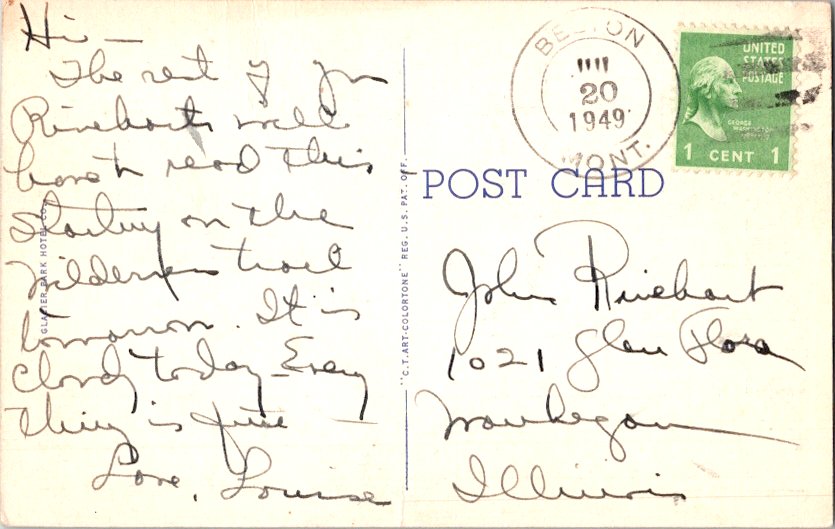 Hi —
The rest of you
Rineharts will
have to read this
Starting on the
Wilderness trail
tomorrow. It is
cloudy today – Every
thing is fine –
Love, Louise
GLACIER PARK HOTEL CO.
"C.T. ART-COLORTONE" REG. U.S. PAT. OFF.
BELTON
20
1949
MONT.
UNITED
STATES
POSTAGE
GEORGE
WASHINGTON
1 CENT 1
POST CARD
John Rinehart
1021 Glen Flora
Waukegan
Illinois